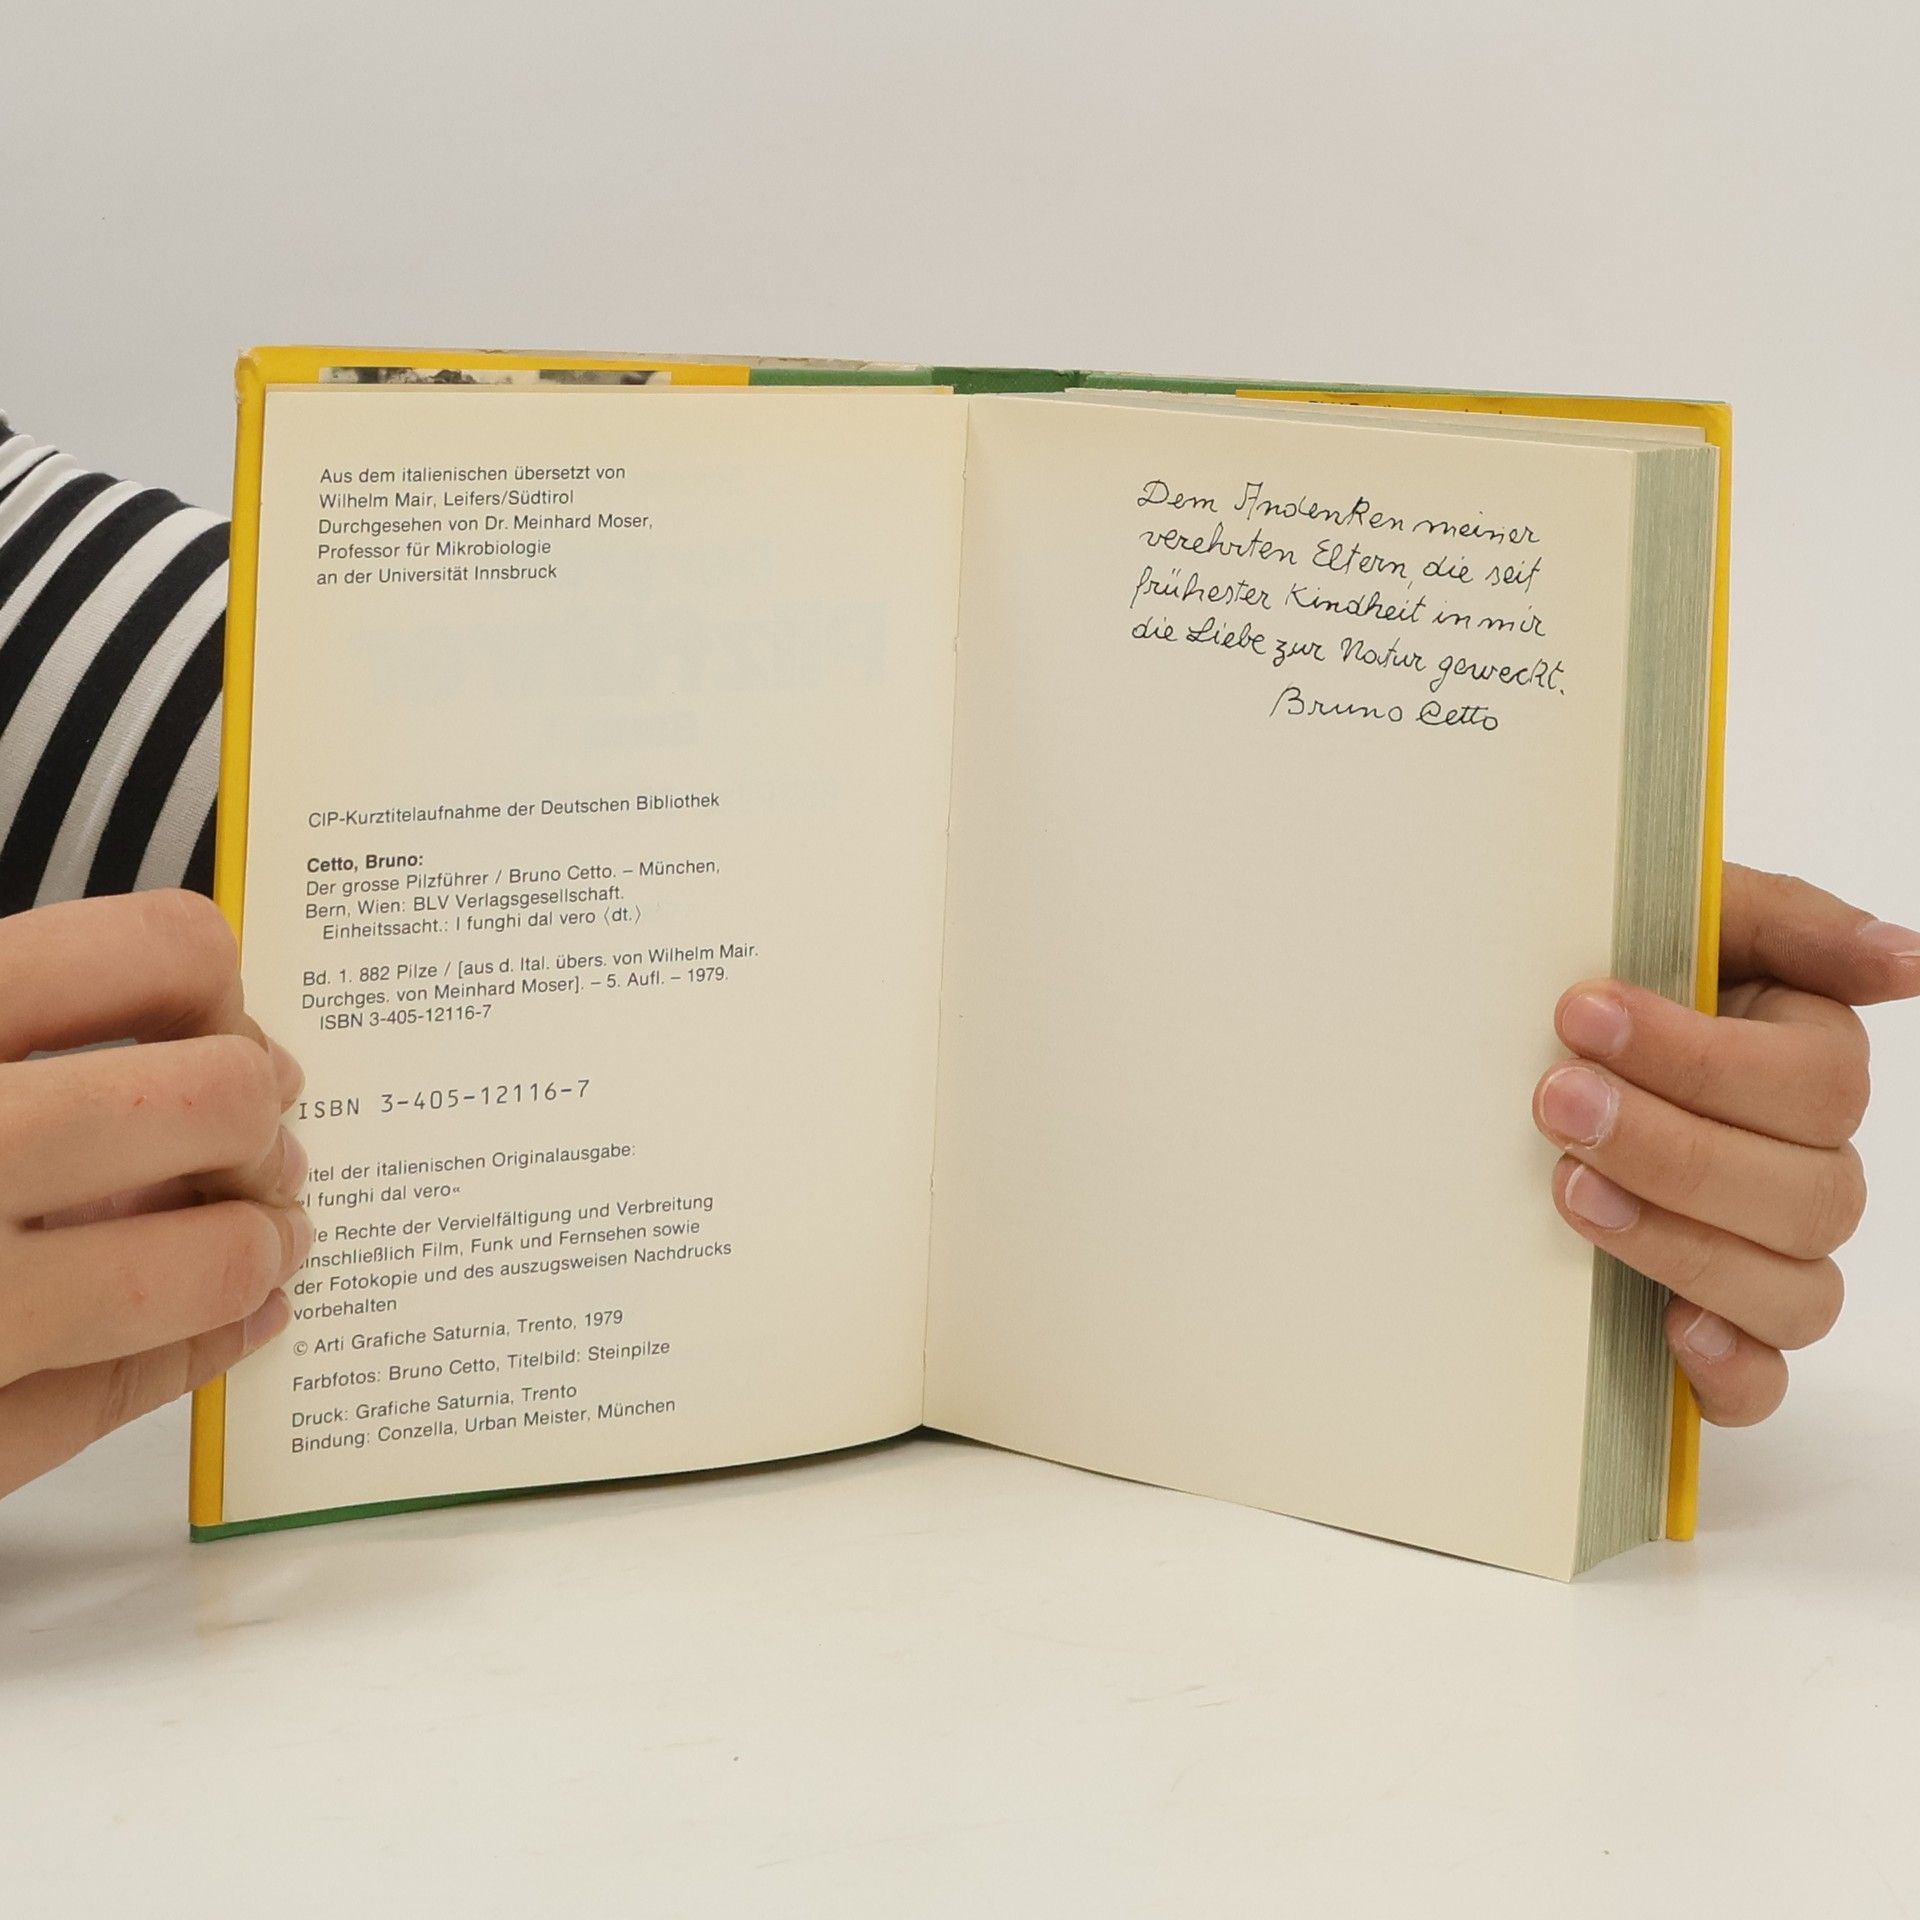 Aus dem italienischen übersetzt von
Wilhelm Mair, Leifers/Südtirol
Durchgesehen von Dr. Meinhard Moser,
Professor für Mikrobiologie
an der Universität Innsbruck
CIP-Kurztitelaufnahme der Deutschen Bibliothek
Cetto, Bruno:
Der grosse Pilzführer / Bruno Cetto. – München,
Bern, Wien: BLV Verlagsgesellschaft.
Einheitssacht.: I funghi dal vero ⟨dt.⟩
Bd. 1. 882 Pilze / [aus d. Ital. übers. von Wilhelm Mair.
Durchges. von Meinhard Moser]. – 5. Aufl. – 1979.
ISBN 3-405-12116-7
ISBN 3-405-12116-7
itel der italienischen Originalausgabe:
»I funghi dal vero«
le Rechte der Vervielfältigung und Verbreitung
inschließlich Film, Funk und Fernsehen sowie
der Fotokopie und des auszugsweisen Nachdrucks
vorbehalten
© Arti Grafiche Saturnia, Trento, 1979
Farbfotos: Bruno Cetto, Titelbild: Steinpilze
Druck: Grafiche Saturnia, Trento
Bindung: Conzella, Urban Meister, München
Dem Andenken meiner
verehrten Eltern, die seit
frühester Kindheit in mir
die Liebe zur Natur geweckt.
Bruno Cetto